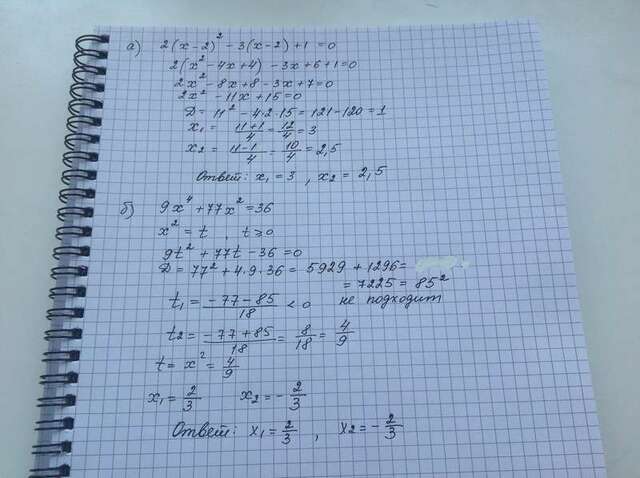 а) 2(x-2)² -3(x-2)+1=0
2(x²-4x+4) -3x+6+1=0
2x²-8x+8-3x+7=0
2x²-11x+15=0
D=11²-4·2·15=121-120=1
x₁ = (11+1)/4 = 12/4 = 3
x₂ = (11-1)/4 = 10/4 = 2,5
Ответ: x₁=3 , x₂ = 2,5
б) 9x⁴+77x²=36
x²=t , t⩾0
9t²+77t-36=0
D=77²+4·9·36=5929+1296=
=7225=85²
t₁ = (-77-85)/18 < 0 не подходит
t₂ = (-77+85)/18 = 8/18 = 4/9
t= x² = 4/9
x₁ = 2/3 x₂ = -2/3
Ответ: x₁ = 2/3 , x₂ = -2/3